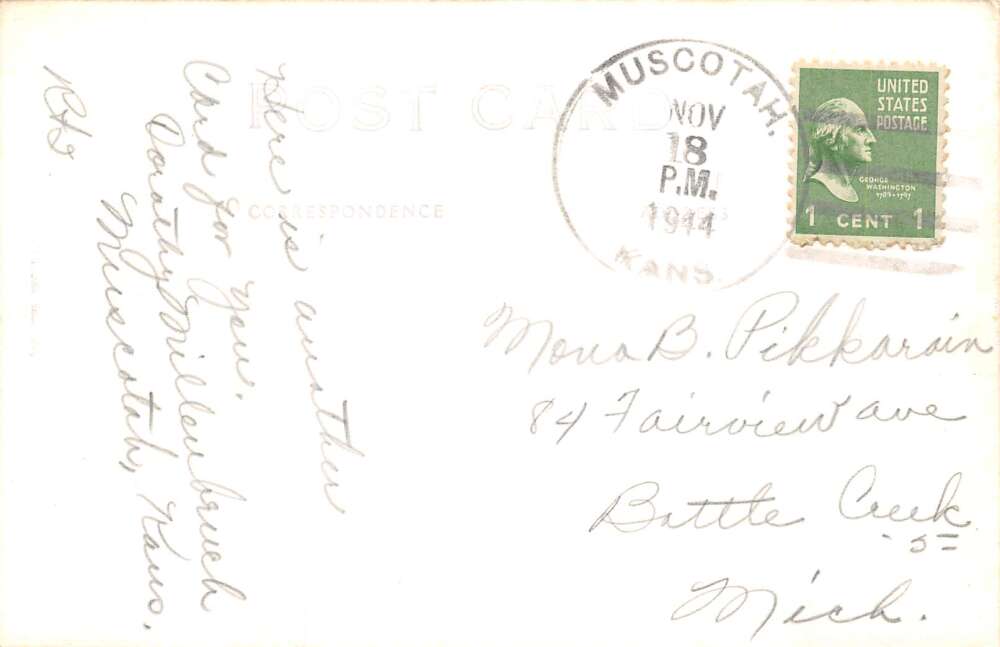 POST CARD
CORRESPONDENCE
Here is another
Card for you.
Dorothy Millenbruch
Muscotah, Kans.
MUSCOTAH,
NOV
18
P.M.
1944
KANS.
UNITED
STATES
POSTAGE
GEORGE
WASHINGTON
1789-1797
1 CENT 1
Mona B. Pikkarain
84 Fairview ave
Battle Creek
Mich.